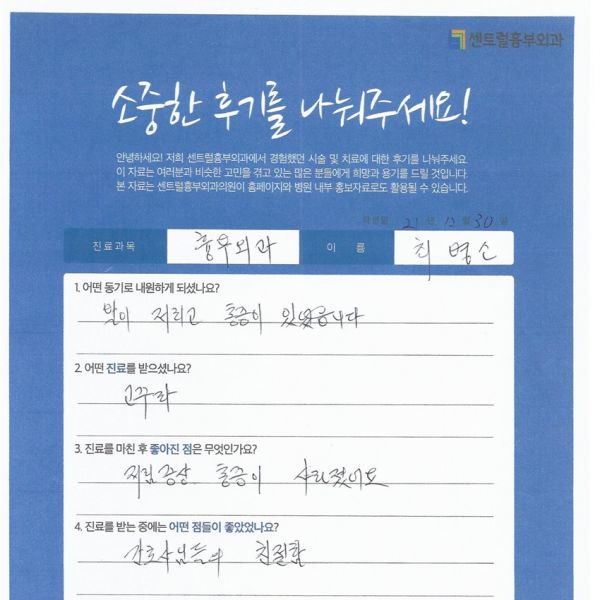 센트럴흉부외과
소중한 후기를 나눠주세요!
안녕하세요! 저희 센트럴흉부외과에서 경험했던 시술 및 치료에 대한 후기를 나눠주세요
이 자료는 여러분과 비슷한 고민을 겪고 있는 많은 분들에게 희망과 용기를 드릴 것입니다.
본 자료는 센트럴흉부외과의원이 홈페이지와 병원 내부 홍보자료로도 활용될 수 있습니다.
작성일 21 년 12 월 30 일
진료과목 흉부외과 이 름 최병소
1. 어떤 동기로 내원하게 되셨나요?
발이 저리고 통증이 있었습니다
2. 어떤 진료를 받으셨나요?
고주파
3. 진료를 마친 후 좋아진 점은 무엇인가요?
저림증상 통증이 사라졌어요
4. 진료를 받는 중에는 어떤 점들이 좋았었나요?
간호사님들의 친절함